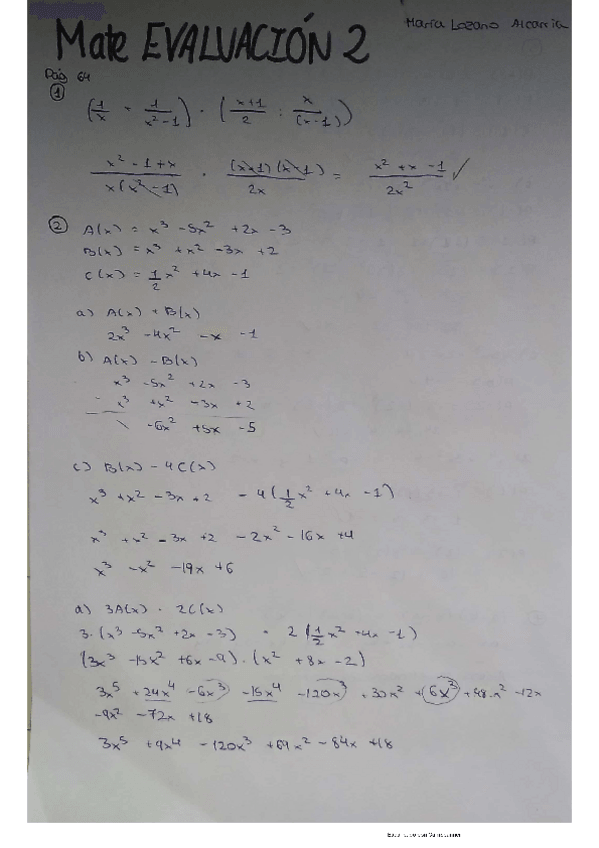 María Lozano Alcarria
Mate EVALUACIÓN 2
Pág 64
① (1/x + 1/(x²-1)) · ((x+1)/2 : x/(x-1))
(x²-1+x)/(x(x²-1)) · ((x+1)(x-1))/2x = (x²+x-1)/2x² ✓
② A(x) = x³ -5x² +2x -3
B(x) = x³ +x² -3x +2
C(x) = 1/2 x² +4x -1
a) A(x) + B(x)
2x³ -4x² -x -1
b) A(x) - B(x)
x³ -5x² +2x -3
- x³ +x² -3x +2
\ -6x² +5x -5
c) B(x) - 4C(x)
x³ +x² -3x +2 -4(1/2 x² +4x -1)
x³ +x² -3x +2 -2x² -16x +4
x³ -x² -19x +6
d) 3A(x) · 2C(x)
3·(x³ -5x² +2x -3) · 2(1/2 x² +4x -1)
(3x³ -15x² +6x -9)·(x² +8x -2)
3x⁵ +24x⁴ -6x³ -15x⁴ -120x³ +30x² +6x³ +48x² -12x
-9x² -72x +18
3x⁵ +9x⁴ -120x³ +69x² -84x +18